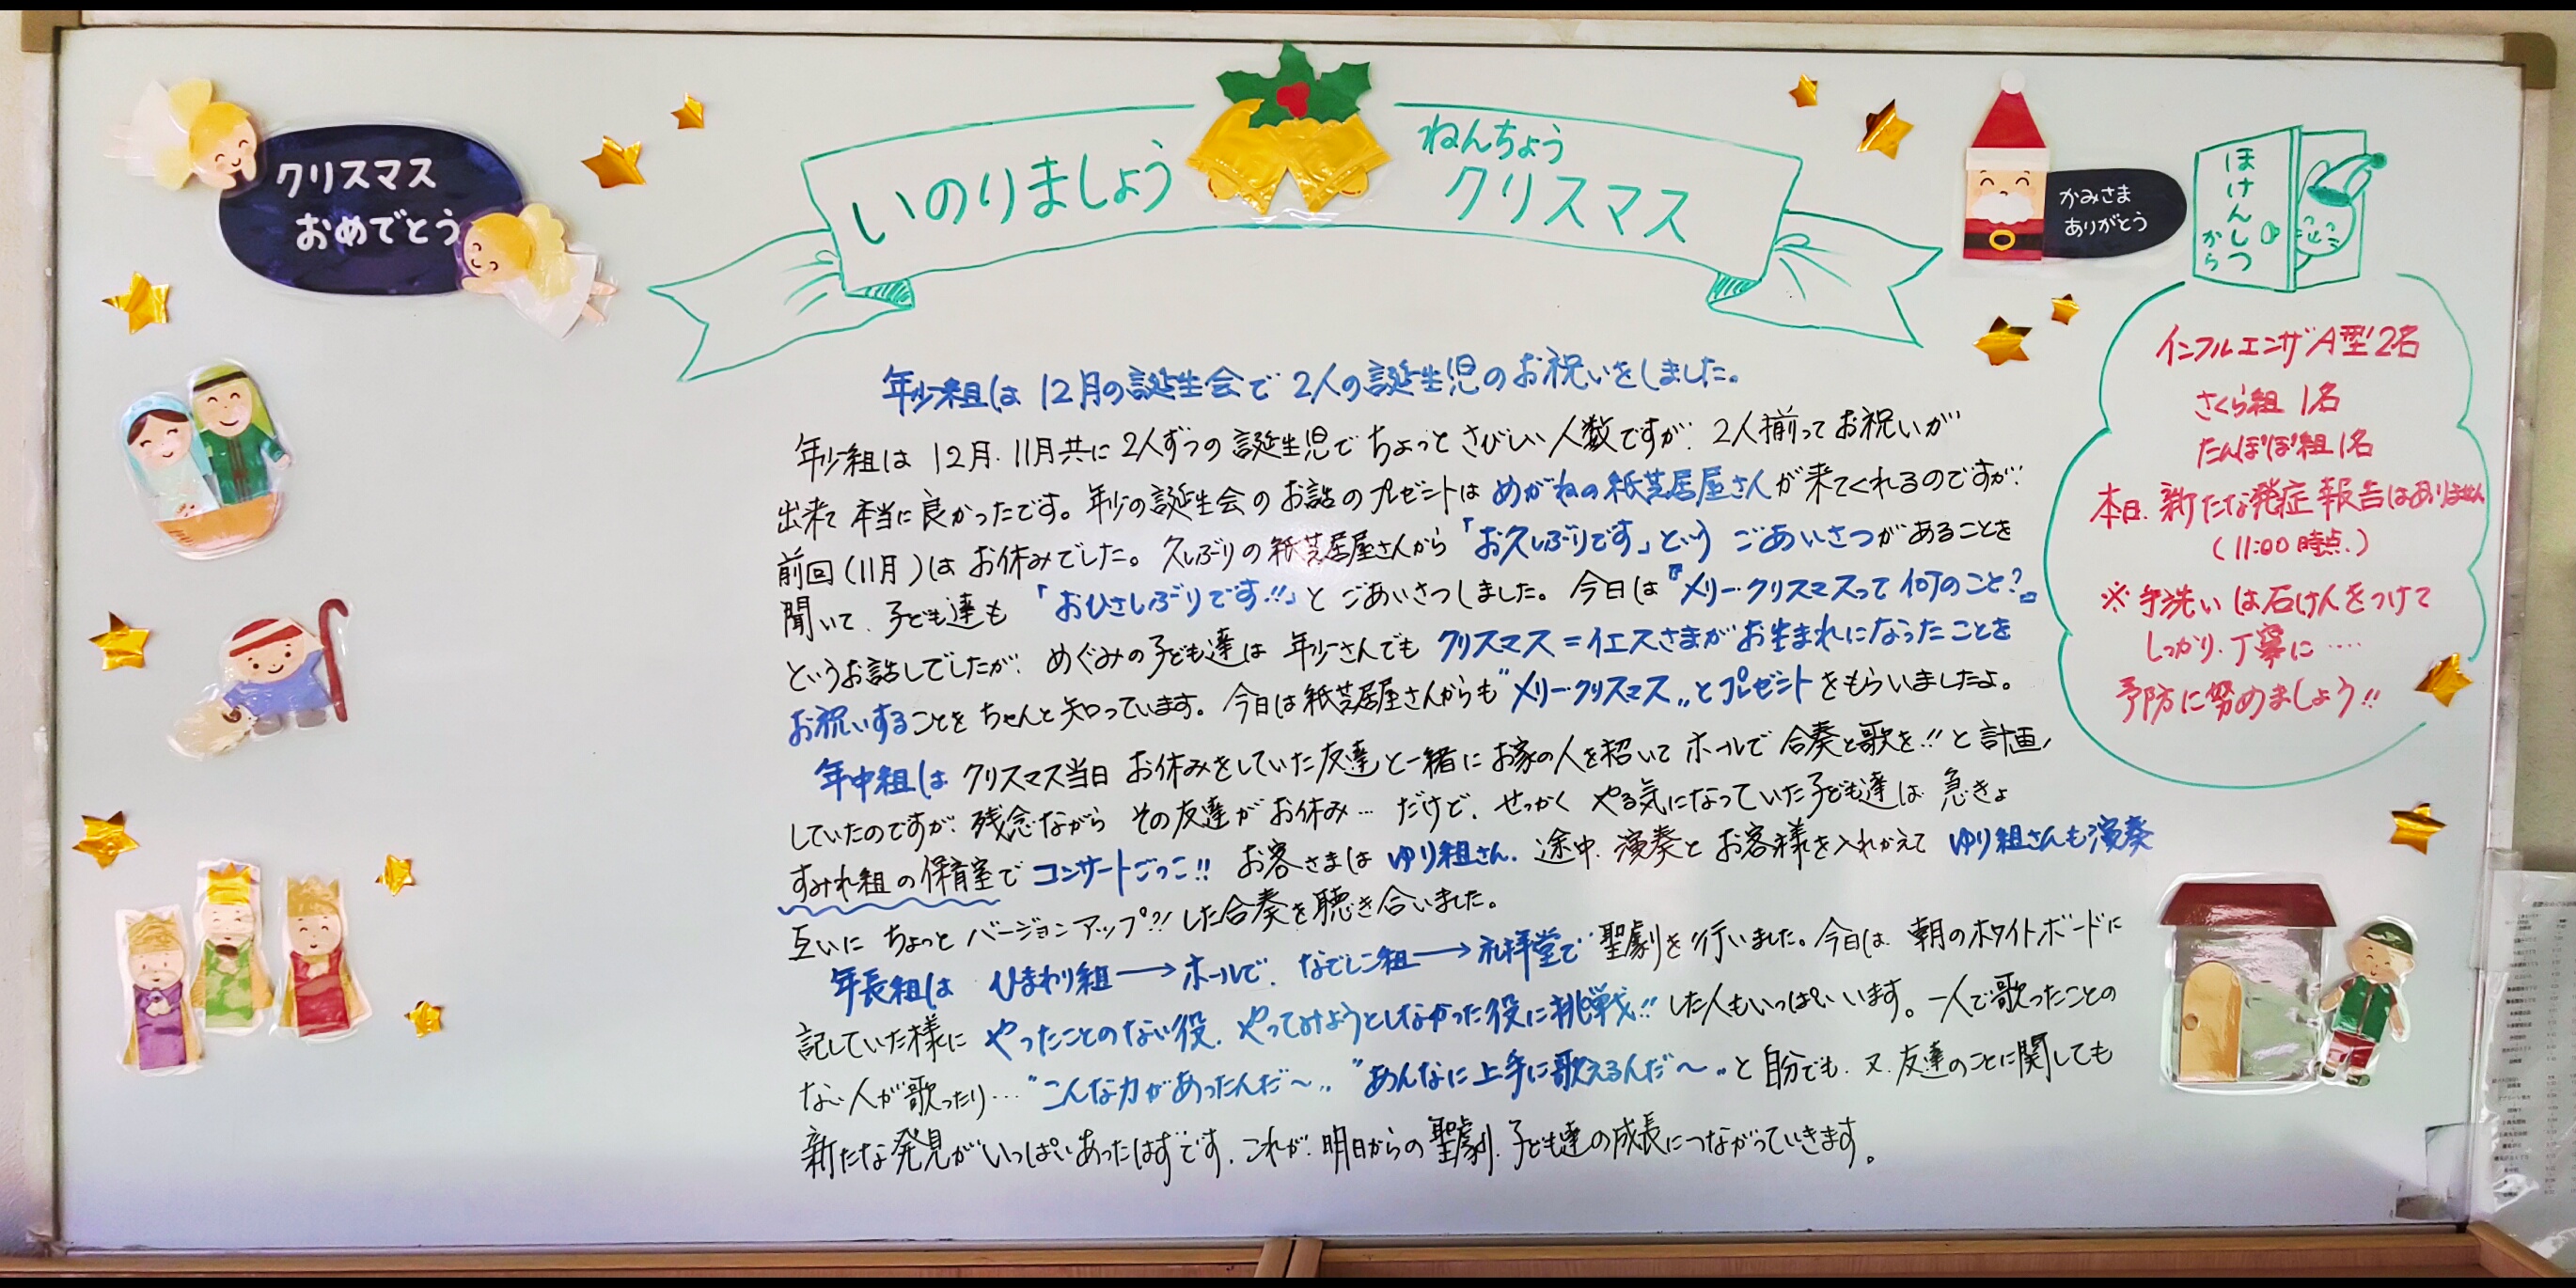 クリスマス
おめでとう
いのりましょう
ねんちょう
クリスマス
かみさま
ありがとう
ほけんしつ
から
年少組は 12月の誕生会で 2人の誕生児のお祝いをしました。
年少組は 12月、11月共に 2人ずつの 誕生児で ちょっと さびしい 人数ですが、2人揃って お祝いが
出来て 本当に 良かったです。年少の誕生会の お話の プレゼントは めがねの紙芝居屋さんが来てくれるのですが、
前回(11月)は お休みでした。久しぶりの紙芝居屋さんから「お久しぶりです」という ごあいさつがあることを
聞いて、子ども達も 「おひさしぶりです!!」と ごあいさつしました。今日は『メリークリスマスって何のこと?』
というお話しでしたが、めぐみの子ども達は 年少さんでも クリスマス=イエスさまがお生まれになったことを
お祝いすることを ちゃんと知っています。今日は紙芝居屋さんからも"メリークリスマス"とプレゼントをもらいましたよ。
年中組は クリスマス当日 お休みをしていた友達と一緒に お家の人を招いて ホールで 合奏と歌を!!と計画
していたのですが、残念ながら その友達が お休み… だけど、せっかく やる気になっていた子ども達は 急きょ
すみれ組の保育室で コンサートごっこ!! お客さまは ゆり組さん、途中、演奏と お客様を入れかえて ゆり組さんも演奏
互いに ちょっと バージョンアップ?!した合奏を聴き合いました。
年長組は ひまわり組→ホールで、なでしこ組→礼拝堂で 聖劇を行いました。今日は、朝のホワイトボードに
記していた様に やったことのない役、やってみようとしなかった役に挑戦!!した人もいっぱいいます。一人で歌ったことの
ない人が歌ったり…"こんな力があったんだ〜" "あんなに上手に歌えるんだ〜"と 自分でも、又、友達のことに関しても
新たな発見がいっぱいあったはずです。これが、明日からの聖劇、子ども達の成長につながっていきます。
インフルエンザA型2名
さくら組 1名
たんぽぽ組1名
本日、新たな発症報告はありません
(11:00時点)
※ 手洗いは石けんをつけて
しっかり、丁寧に……
予防に努めましょう!!